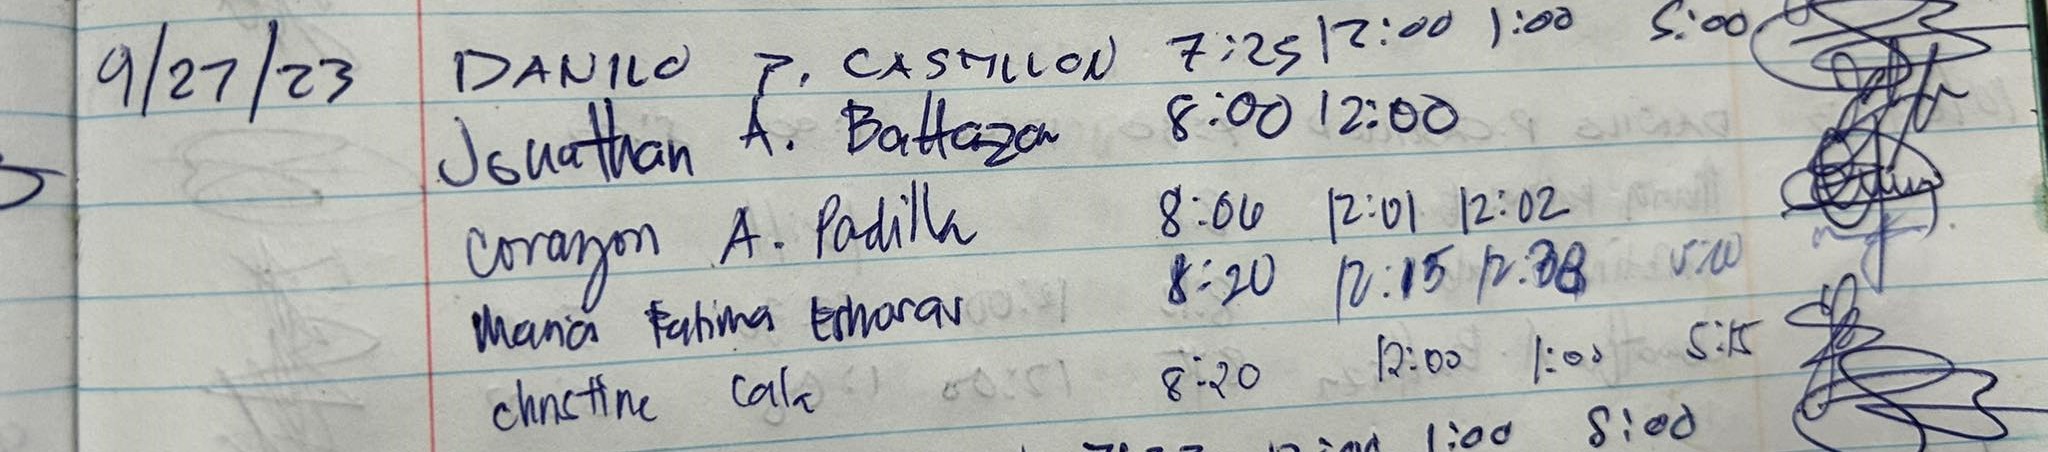 9/27/23 DANILO P. CASTILLON 7:25 12:00 1:00 5:00
Jonathan A. Baltazar 8:00 12:00
Corazon A. Padilla 8:06 12:01 12:02
Maria Fatima 8:20 12:15 12:38 5:00
Christine Cala 8:20 12:00 1:00 5:15
1:00 8:00